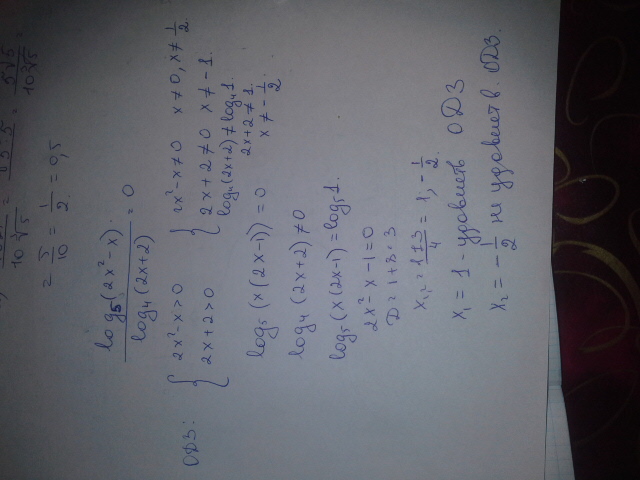 10 ∛5
10 ∛5
= 5/10 = 1/2 = 0,5
log₅(2x²-x) / log₄(2x+2) = 0
ОДЗ: { 2x²-x>0 { 2x²-x≠0 x≠0, x≠1/2
2x+2>0 2x+2≠0 x≠-1.
log₄(2x+2)≠log₄1.
2x+2≠1.
x≠-1/2.
log₅(x(2x-1))=0
log₄(2x+2)≠0
log₅(x(2x-1)=log₅1.
2x²-x-1=0
D=1+8=3
x₁,₂=1±3/4=1, -1/2.
x₁=1-удовлеть ОДЗ
x₂=-1/2 не удовлетв. ОДЗ.